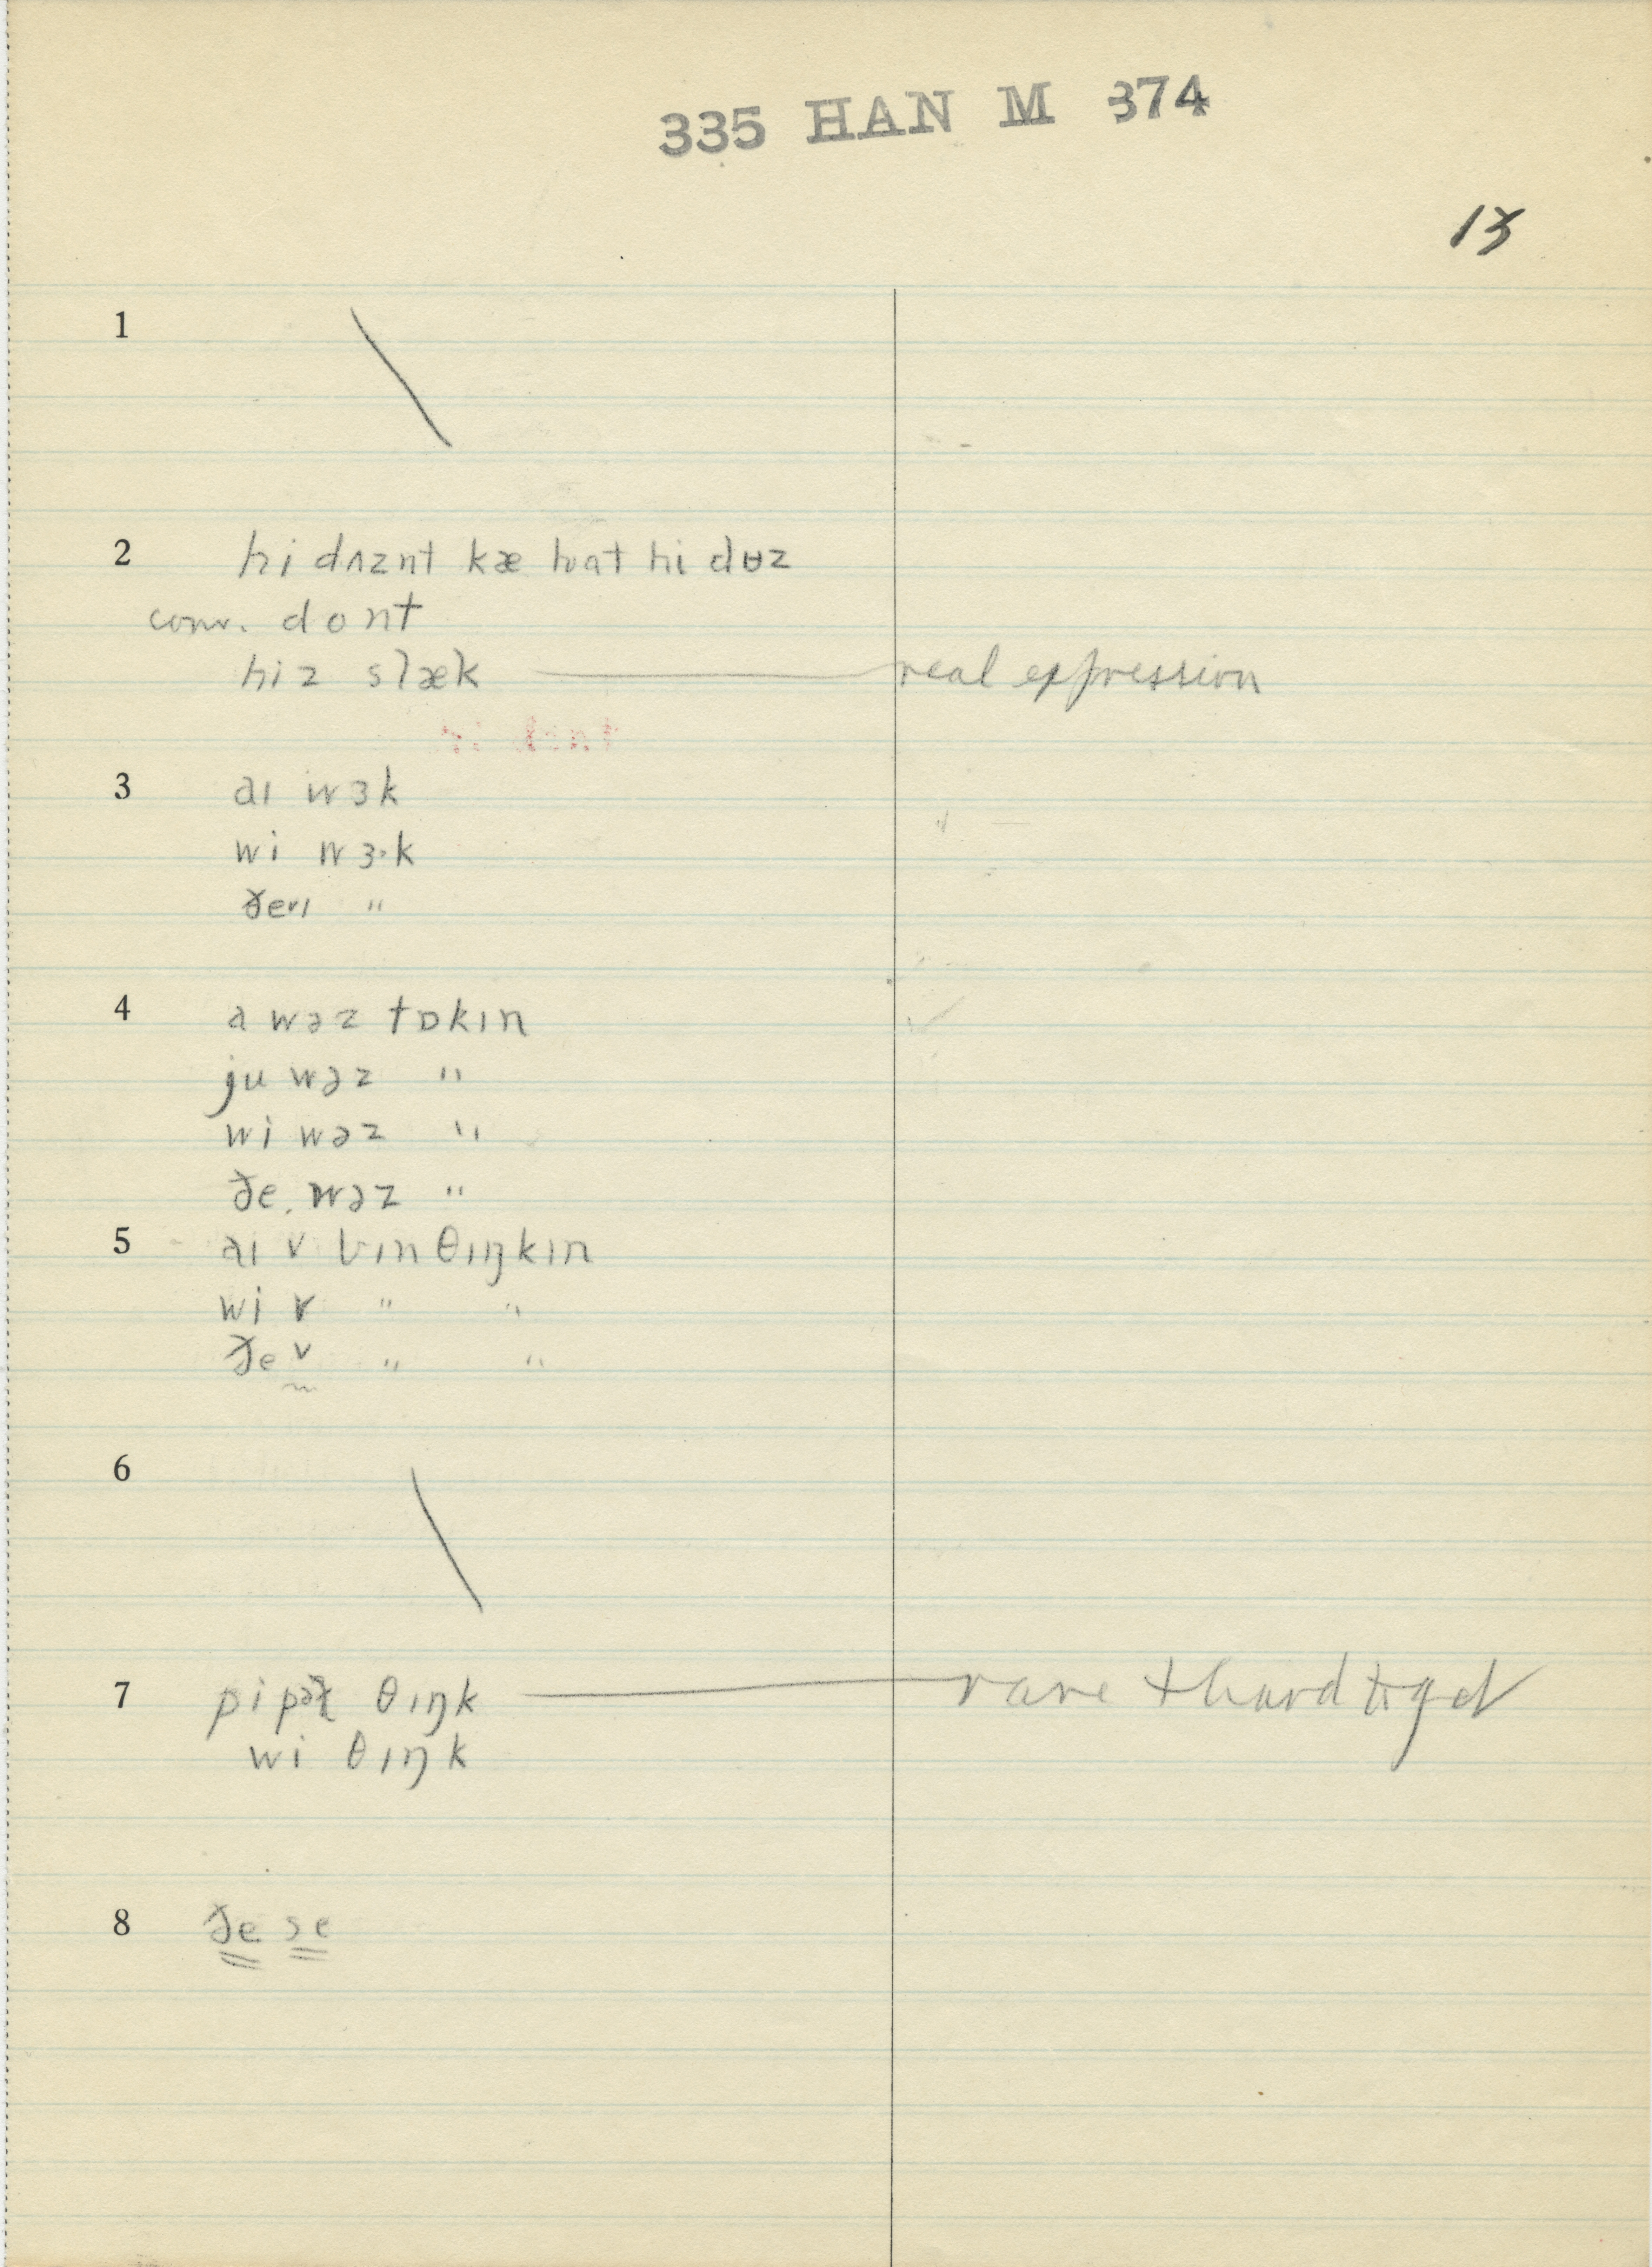 335 HAN M 374
13
1
2 hi dʌznt kæ hwat hi dʉz
conv. dont
hiz slæk real expression
3 aɪ wɜk
wi wɜ·k
ðeɪ "
4 a wəz tɒkɪn
ju wəz "
wi wəz "
ðe. wəz "
5 aɪ v bɪn θɪŋkɪn
wi v " "
ðe v " "
6
7 θɪŋk rare + hard to get
wi θɪŋk
8 ðe se